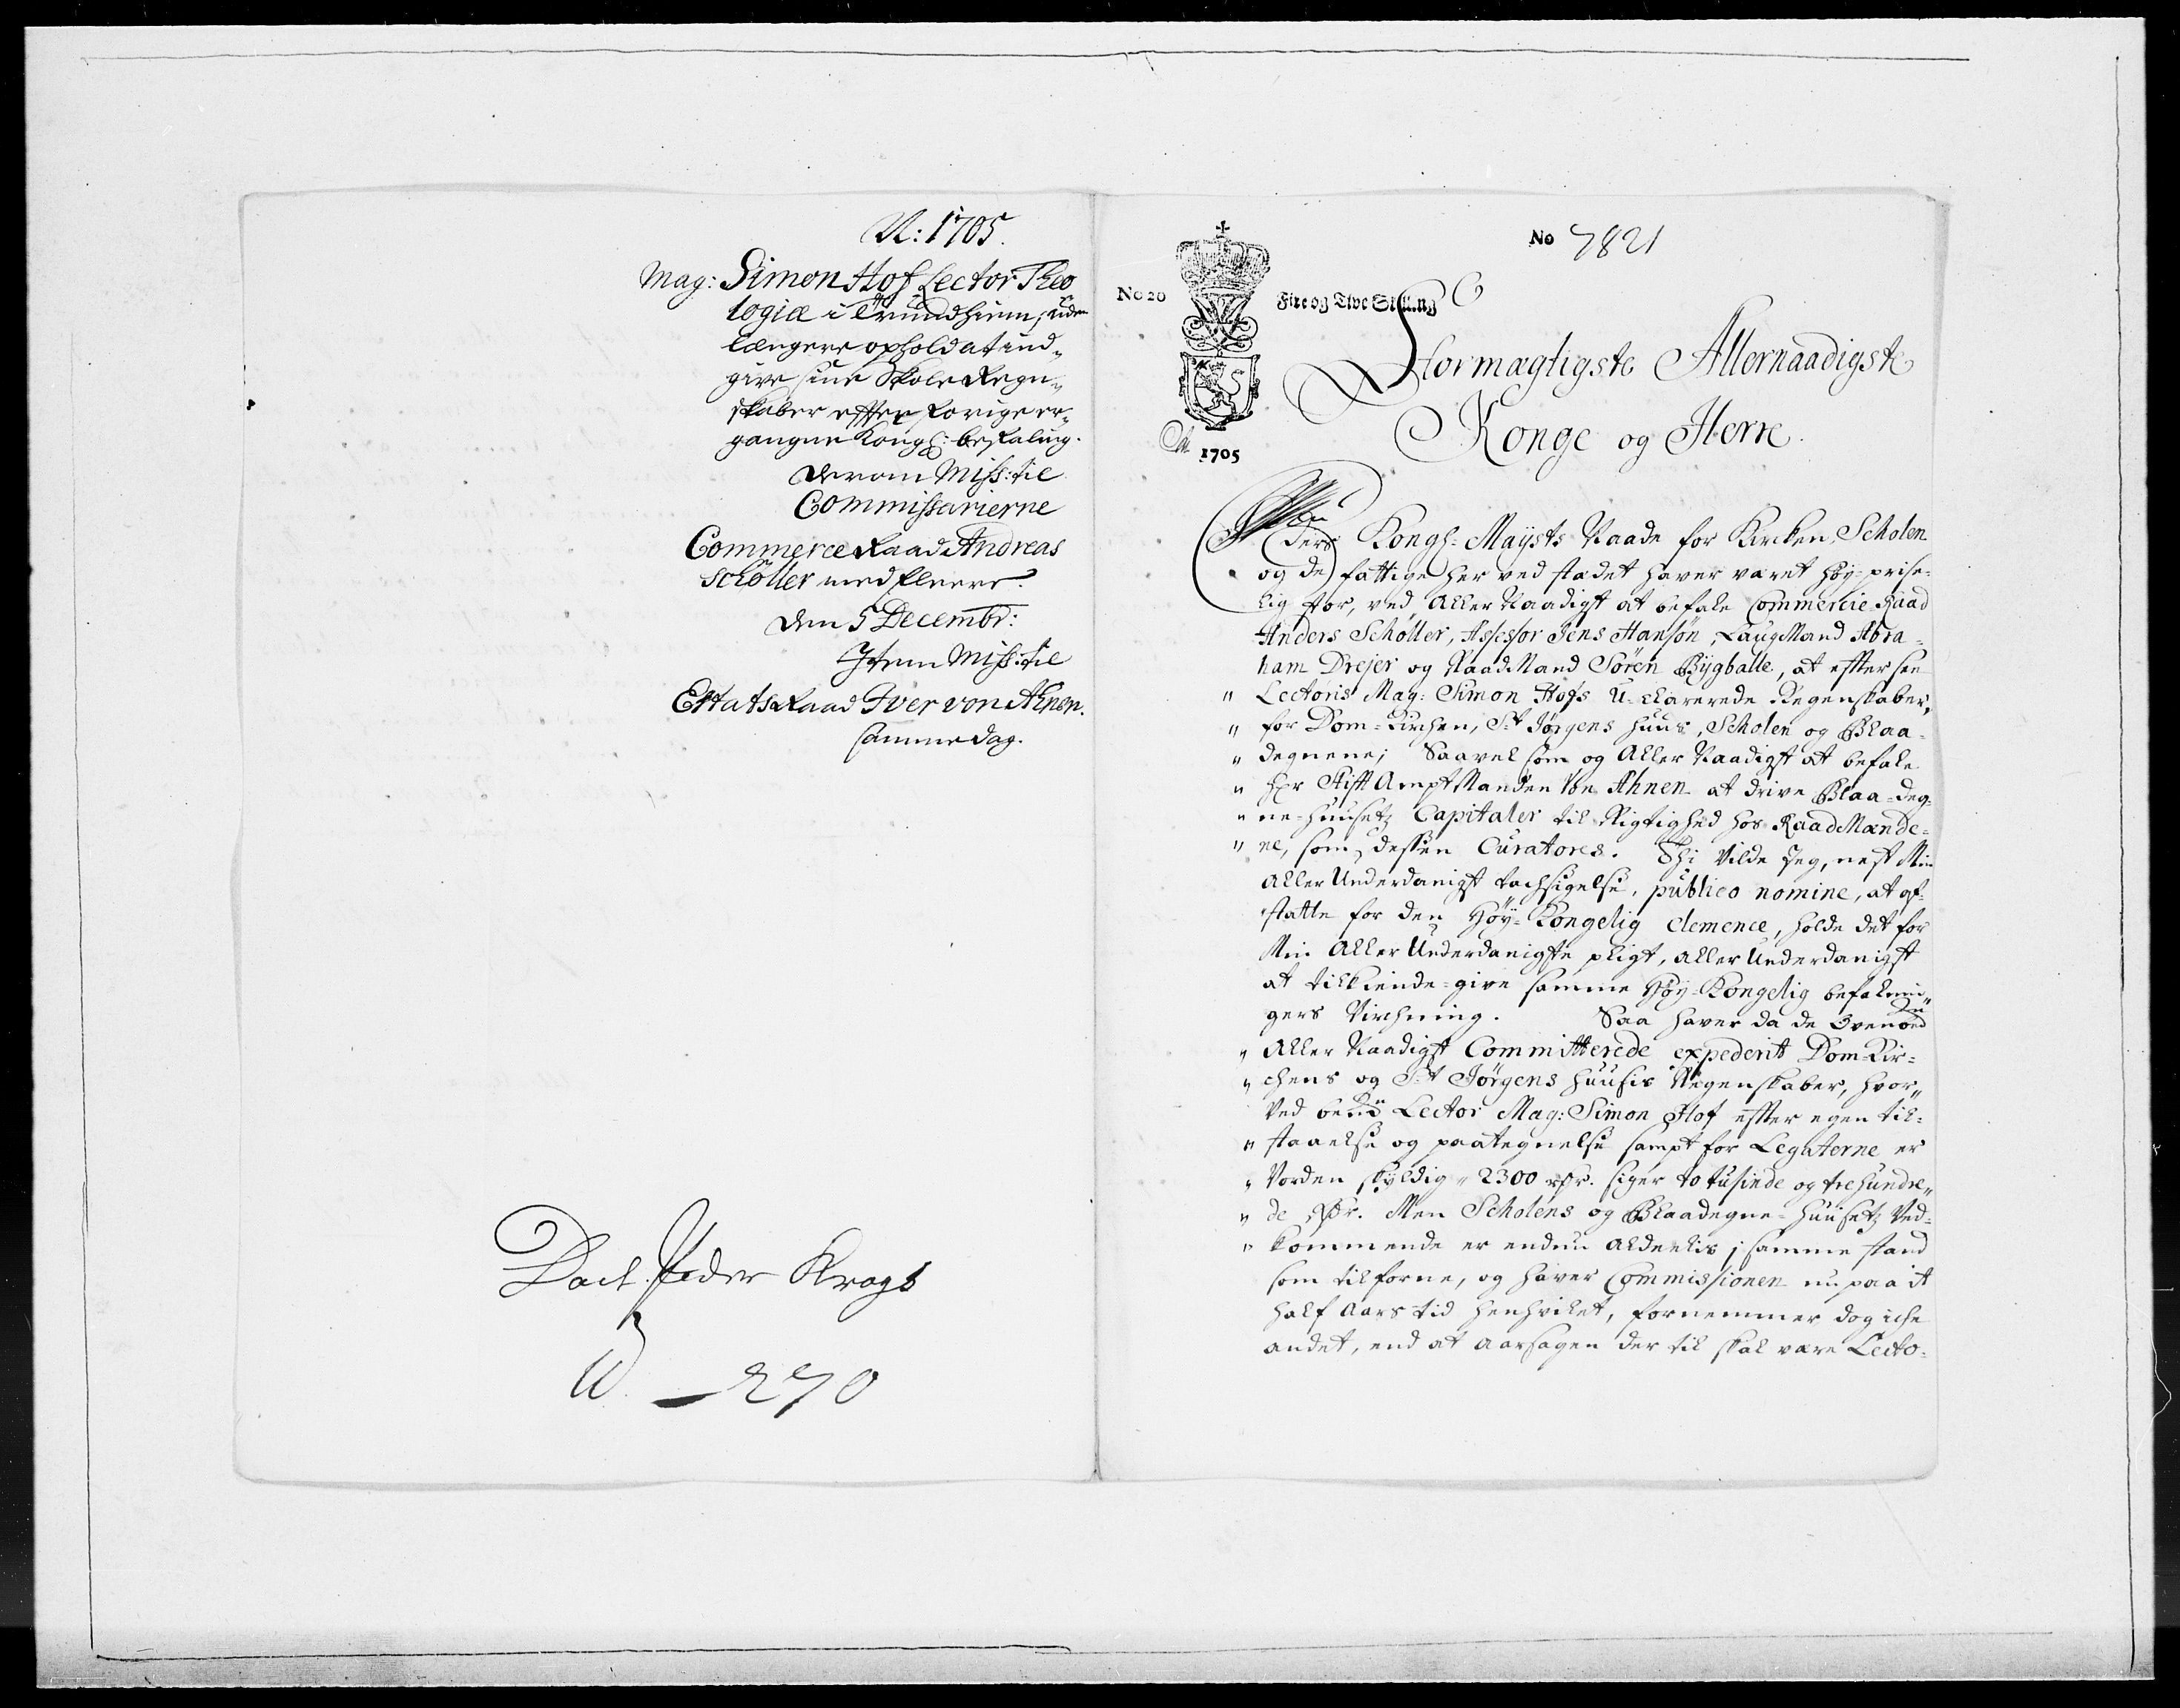 N: 1705.
Mag: Simon Hof Lector Theo
logiæ i Trundhiem, uden
længere ophold at ind„
give sine Skole Regn„
skaber efter forige er„
gangne Kongl: befaling.
Derom Miss: til
Commissarierne
Commerce Raad Andreas
Schøller med fleere.
Den 5 Decembr:
Item Miss: til
Etats Raad Iver von Ahnen.
samme dag.
Peder Krags
270
No 7821
No 20
Fire og Tive Skilling
1705
Stormægtigste Allernaadigste
Konge og Herre.
Eders Kongl: Mayts Naade for Kircken, Scholen
og de fattige her ved stædet hafver været høy-prise-
lig stor, ved Aller Naadigst at befale Commercie Raad
Anders Schøller, Assessor Jens Hansøn, Laug Mand Abra-
ham Drejer og Raad Mand Søren Bygballe, at effter see
„ Lectoris Mag: Simon Hofs U-clarerede Regenskaber,
„ for Dom-Kirchen, St Jørgens huus, Scholen og Blaa-
„ degnene; Saavel som og Aller Naadigst at befale
„ Hr Stifft Ampt Manden Von Ahnen at drive Blaa-deg-
„ ne-huusetz Capitaler til Rigtighed hos Raad Mænde-
„ ne, som dessen Curatores. Thi Vilde Jeg, nest Min
Aller Underdanigst tachsigelse, publico nomine, at af-
statte for den Høy-Kongelig clemence, holde det for
Min Aller Underdanigste pligt, Aller Underdanigst
at tilkiende-give samme Høy-Kongelig befalnin„
gers Virchning. Saa hafver da de Ovenbed
„ Aller Naadigst Committerede expederit Dom-Kir-
„ chens og St Jørgens huusis Regenskaber, hvor„
Ved bete Lector Mag: Simon Hof effter egen til-
„ staaelse og paategnelse sampt for Legaterne er
„ Vorden skyldig „ 2300 rdr. siger to tusinde og trehundre„
„ de Rdr. Men Scholens og Blaadegne-huusetz Ved-
„ kommende er endnu aldeelis i samme stand
som tilforne, og hafver Commissionen nu paa it
half Aars tid henhvilet, fornemmer dog iche
andet, end at Aarsagen der til skal være Lecto-